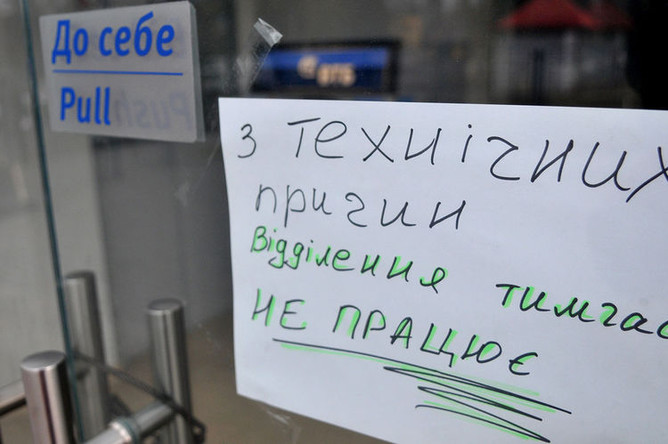 До себе
Pull
Push
ВТБ
З технічних
причин
Відділення тимчас
НЕ ПРАЦЮЄ